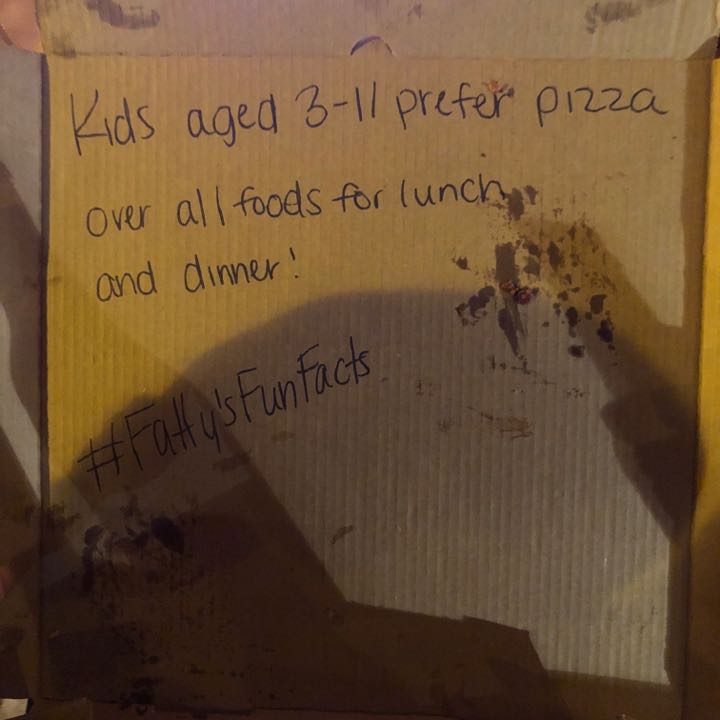 Kids aged 3-11 prefer pizza
over all foods for lunch
and dinner!
#Fatty'sFunFacts